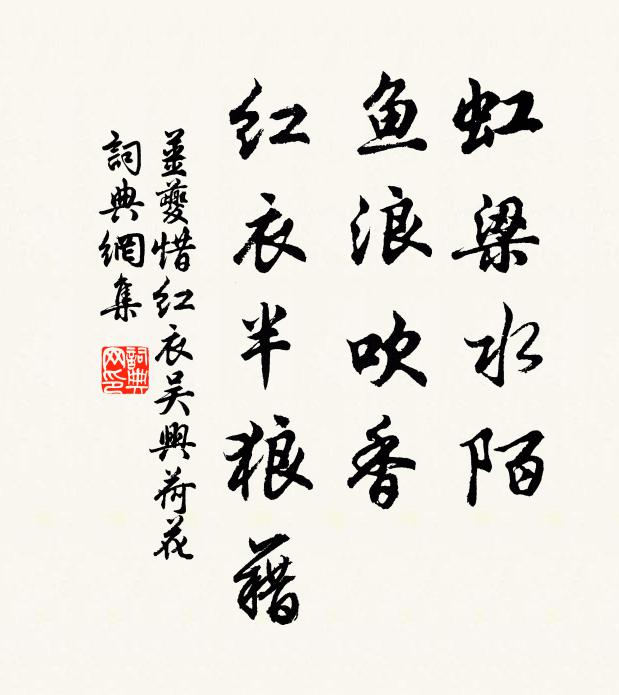 虹梁水陌
鱼浪吹香
红衣半狼藉
姜夔惜红衣吴興荷花
詞典網集
詞典网印